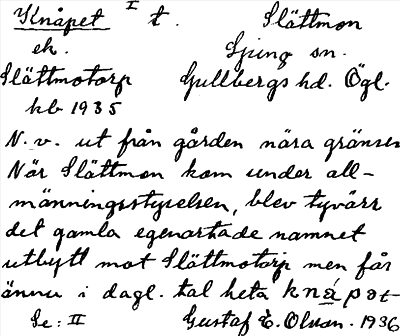 Knåpet I t. Slättmon
ek. Ljung sn.
Slättmotorp Gullbergs hd. Ögl.
kb 1935
N. v. ut från gården nära gränsen
När Slättmon kom under all-
männingsstyrelsen, blev tyvärr
det gamla egenartade namnet
utbytt mot Slättmotorp men får
ännu i dagl. tal heta knǻpət
Se: II Gustaf E. Olson. 1936